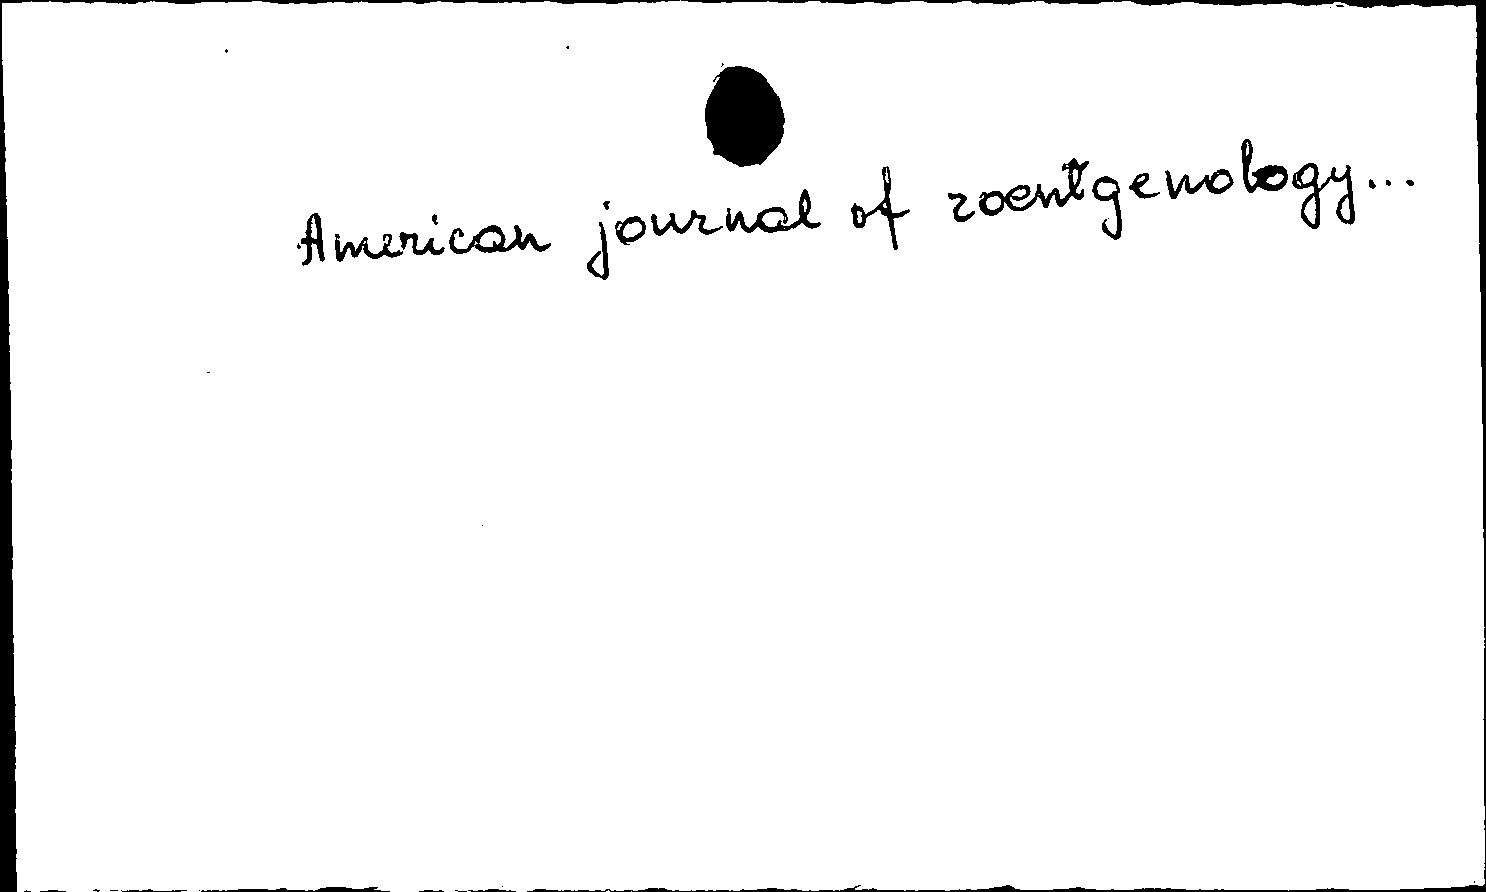 American journal of roentgenology...